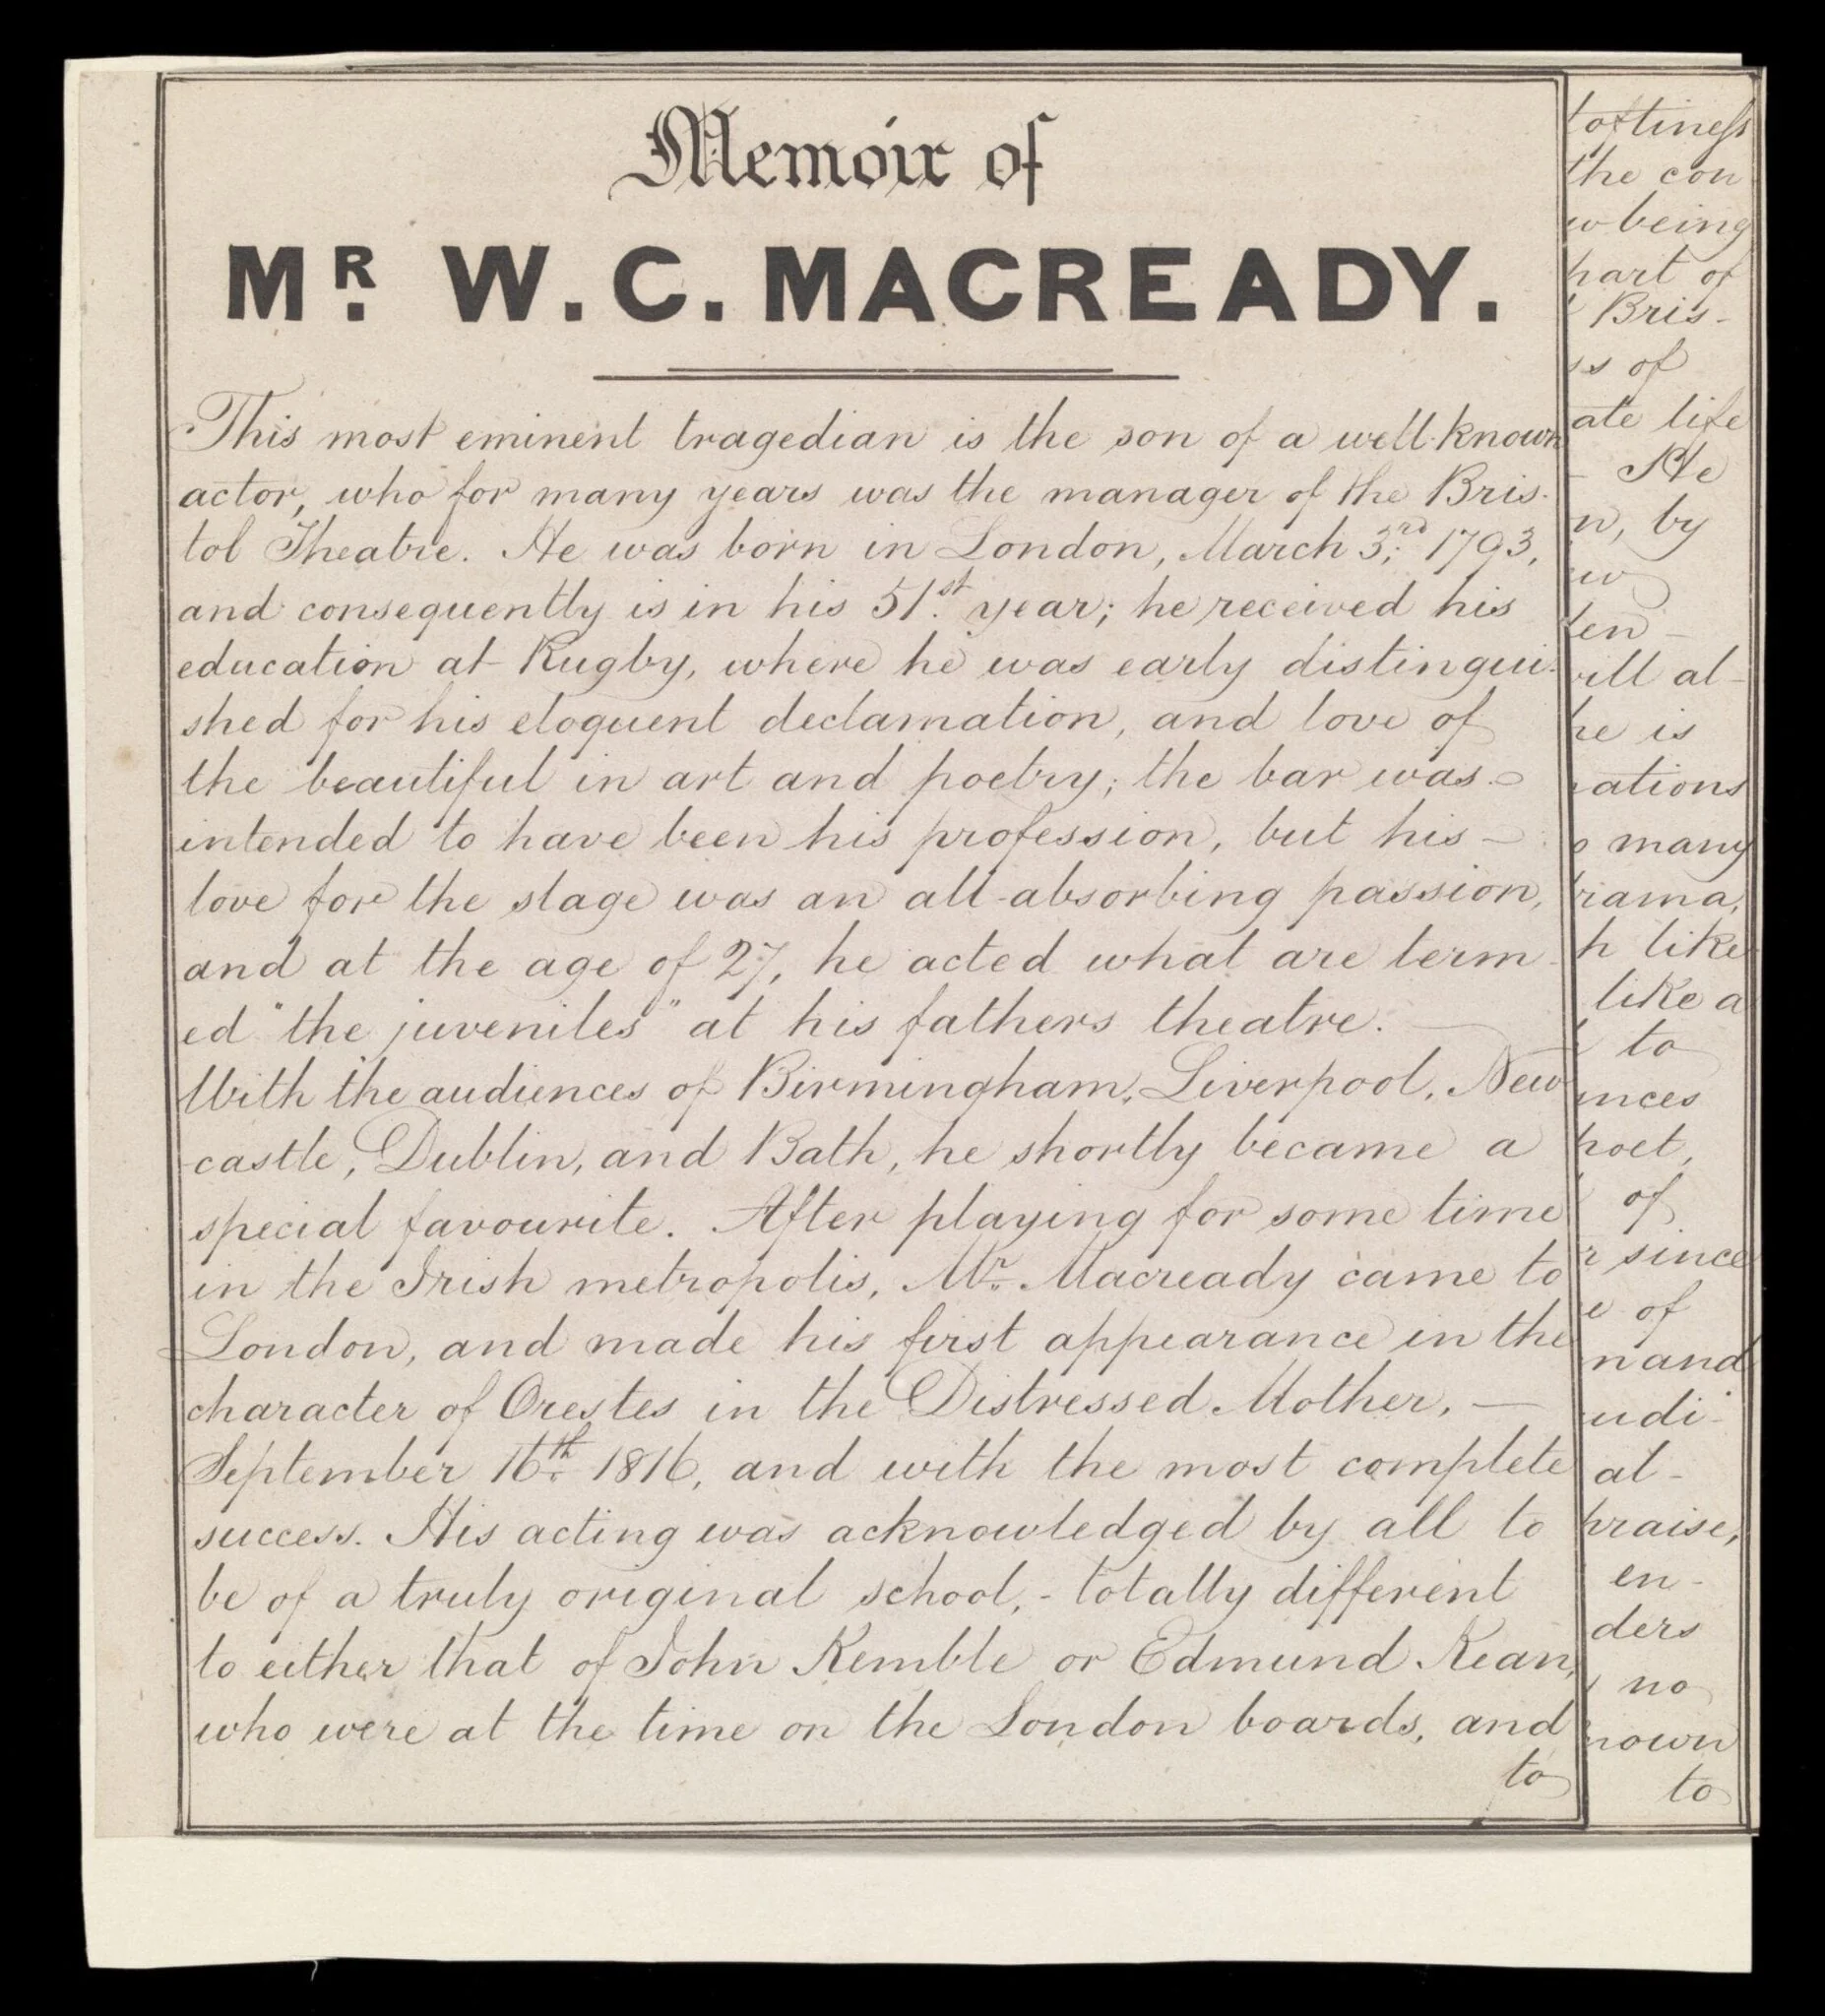 Memoir of
MR. W. C. MACREADY.
This most eminent tragedian is the son of a well-known
actor, who for many years was the manager of the Bris-
tol Theatre. He was born in London, March 3rd. 1793,
and consequently is in his 51st. year; he received his
education at Rugby, where he was early distingui-
shed for his eloquent declamation, and love of
the beautiful in art and poetry; the bar was
intended to have been his profession, but his –
love for the stage was an all-absorbing passion,
and at the age of 27, he acted what are term-
ed "the juveniles" at his fathers theatre. —
With the audiences of Birmingham, Liverpool, New
castle, Dublin, and Bath, he shortly became a
special favourite. After playing for some time
in the Irish metropolis, Mr. Macready came to
London, and made his first appearance in the
character of Orestes in the Distressed Mother, —
September 16th. 1816, and with the most complete
success. His acting was acknowledged by all to
be of a truly original school, - totally different
to either that of John Kemble or Edmund Kean,
who were at the time on the London boards, and
to
loftiness
the con
w being
part of
Bris-
ss of
ate life
- He
n, by
ew
ten -
will al-
he is
ations
o many
rama,
h like
like a
to
ences
poet,
of
r since
e of
n and
udi-
al-
praise,
en-
ders
no
nown
to